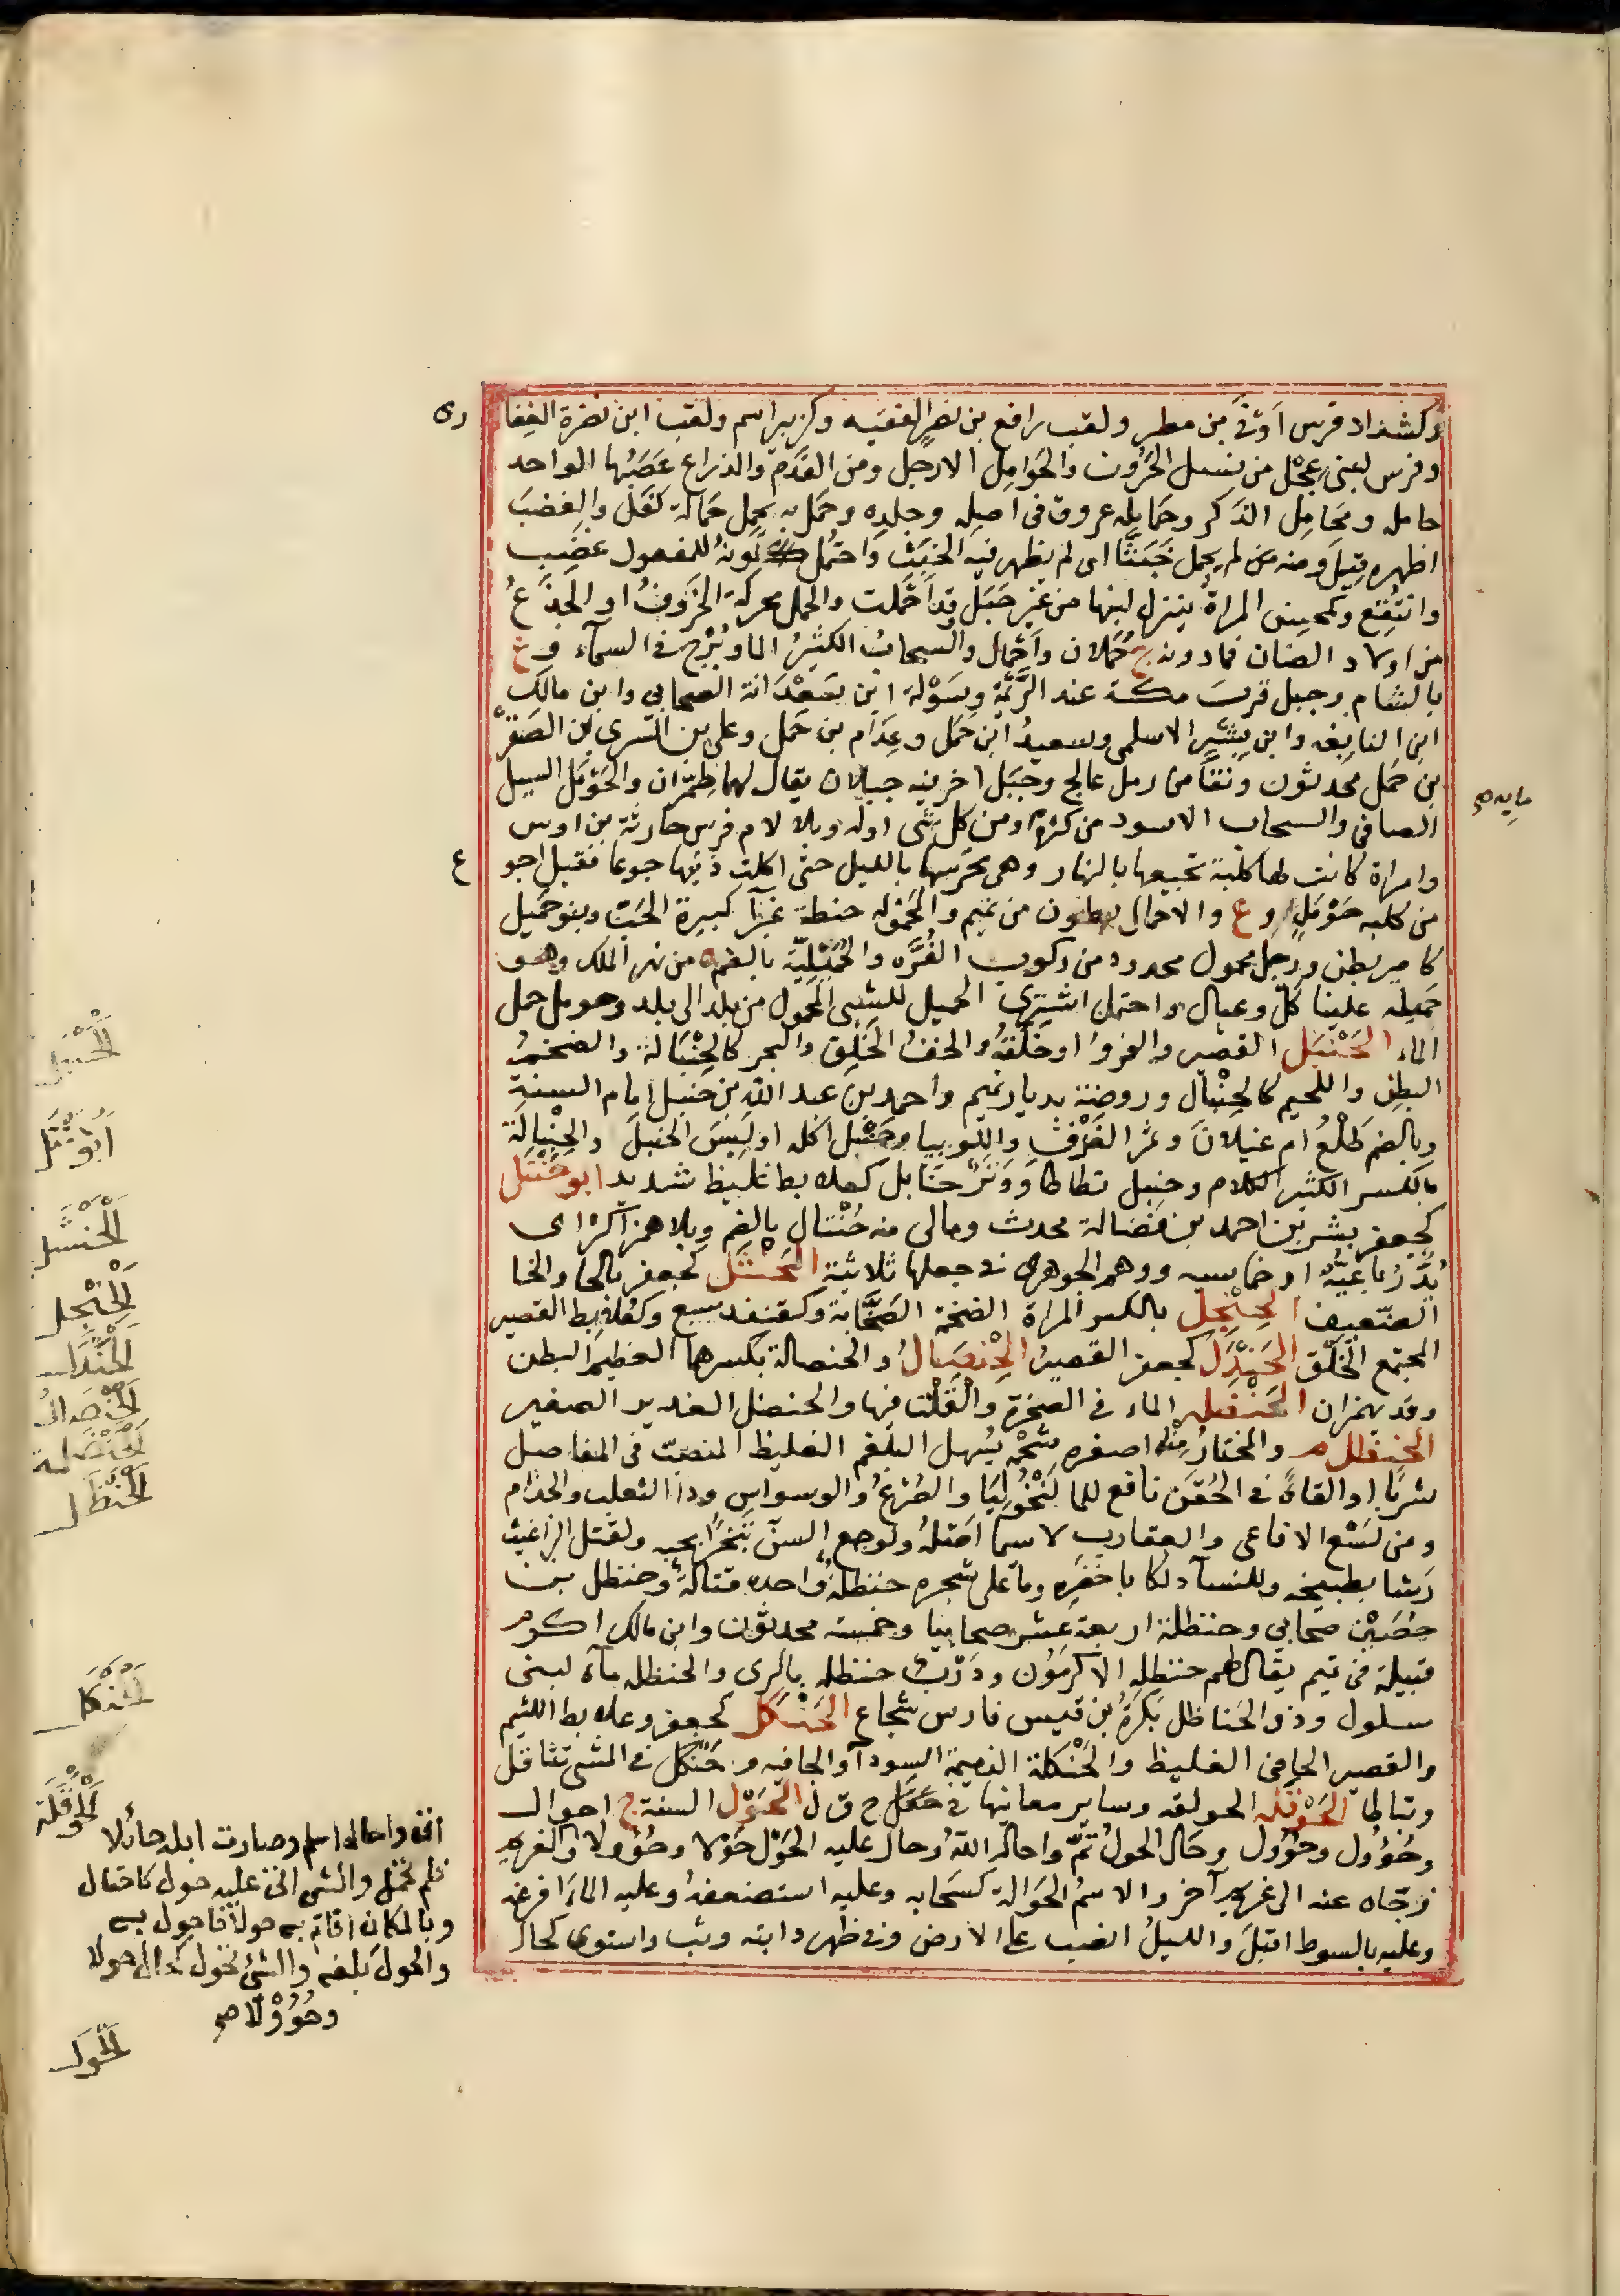 وكشداد فرس أوفى بن مطر ولقب رافع بن نصر الفقيه وكزبير اسم ولقب ابن نضرة الغفا
ري
وفرس لبني عجل من نسل الحَرون والحَوامل الارجل ومن القَدَم والذراع عَصَبُها الواحد
حامله ومَحَامِل الذكر وحَمايله عروق في اصله وجلده وحَمل به يحمل حَمالة كفل والغضبَ
اظهره قيل ومنه من لم يحمل خَبَثًا اى لم يظهر فيه الخبث واحتُمِل لونه للمفعول غضب
وانتُقِع وكمحسن المراة ينزل لبنها من غير حَبَل وقد احملت والحمل محركة الخَروف او الجذَعُ
من اولاد الضان فما دونه ج حُملان واَحمال والسحابُ الكثيرُ الما وبُرْج في السمآء و ع
بالشام وجبل قربَ مكة عند الزَّيْمة وسَوْلة ابن سَعْدَانة الصحابي وابن مالك
ابن النابغه وابن بشير الاسلمى وسعيدُ ابن حَمَل وعدام بن حَمل وعلى بن السَرى بن الصَقر
بن حَمل محدثون ونقاً من رمل عالج وجَبَل اخر فيه جبلان يقال لهما طِمِرّان والحَوْمَل السيل
الصافى والسحاب الاسود من كثرة ومن كل شى اوله وبلا لام فرس حارثة بن اوس
مايه صح
وامراة كانت لها كلبة تجيعها بالنهار وهى تحرسها بالليل حتى اكلت ذنبها جوعا فقيل اجو
ع
من كلبه حَوْمَل و ع والاحمال بطون من تميم والمحموله حنطة غبرآ كبيرة الحَبّ وبنو حَميل
كامير بطن ورجل محمول مجدود من ركوب الفُرَّه والحُمَيْلِيّة بالضم ة من نهر الملك وهو
حَميله علينا كَلّ وعيال واحتمل اشترى الحميل للشى المحمول من بلد الى بلد وحومل حمل
الماء الحَنْبَل القصير والفرو او خَلَقهُ والخف الخَلَق والبحر كالحِنْبَالة والضخمُ
البطن واللحيم كالحِنْبال وروضة بديار تميم واحمد بن عبد الله بن حنبل امام السنة
وبالضم طَلْعُ ام غيلان وثمر الغَرْفِ واللوبيا وحَنْبل اكله او لبِسَ الحنبل والحِنْبالَة
بالكسر الكثير الكلام وحنبل تطاطا ووَتَر حَنابل كعلابط غليظ شديد ابو حَنْتَل
كجعفر بشر بن احمد بن فَضالة محدث ومالى منه حُنْتال بالضم وبلا همز آكثر اى
بُدّ رُباعيَّة او خماسيه ووهم الجوهرى فى جعلها ثلاثية الحَنْثَل كجعفر بالحا والخا
الضعيف الحِنْجِل بالكسر المراة الضخمة الصَخَّابة وكقنفد سبع وكعُلابط القصير
المجتمع الخَلْق الحَنْدَل كجعفر القصيرُ الحِنْصَالُ والحنصالة بكسرهما العظيم البطن
وقد يهمزان الحَنْضَله الماء فى الصخرة والقَلْت فيها والحنضل الغدير الصغير
الحَنظل م والمختار منه اصفره شحمه يُسهل البلغم الغليظ المنصبّ في المفاصل
شربًا او القاءً فى الحُقَن نافع للمالَنْخُوليا والصَرْع والوسواس وداا الثعلب والجذام
ومن لسْع الافاعى والعقارب لاسيما اصله ولوجع السن تبخرًا بحبه ولقتل البراغيث
رَشا بطبيخه وللنسآ دلكا باخضره وما على شجره حنظلة واحده قتالة وحنظل بن
حُصَيْن صحابى وحنظلة اربعة عشر صحابيا وخمسة محدثون وابن مالك اكرم
قبيلة في تميم يقال لهم حنظله الاكرمون ودَرْب حنظله بالرى والحنظله مآء لبنى
سلول وذو الحَناظل بَكَرَةُ بن قيس فارس شجاع الحَنْكل كجعفر وعلابط اللئيم
والقصير الجافى الغليظ والحَنْكلة الذميمة السودآ والجافيه وحَنْكل فى المشى تثاقل
وتباطا الحَوْقَله الحولقه وساير معانيها فى ح ق ل الحَوْل السنة ج احوال
وحُؤُول وحُوُول وحَال الحول تمّ واحاله اللهُ وحال عليه الحَوْل حَوْلا وحُؤولا والغريم
زجّاه عنه الى غريم آخر والاسمُ الحَوَالة كسَحابه وعليه استضعفهُ وعليه الماءَ افرغه
وعليه بالسوط اقبلَ والليلُ انصب على الارض وفى ظهر دابته وثب واستوى كحال
الحنبل
ابو حنتل
الحنثل
الحِنْجل
الحَنْدل
الحنصال
الحنضلة
الحَنْظَل
الحَنْكل
الحَوْقَلَة
اتى واحال اسلم وصارت ابله حائلا
فلم تحمل والشى اتى عليه حول كاحتال
وبالمكان اقام به حولا فاحول به
والحول بلغه والشئ تحول كحال حولا
وحُؤُوْلًا صح
الحَول